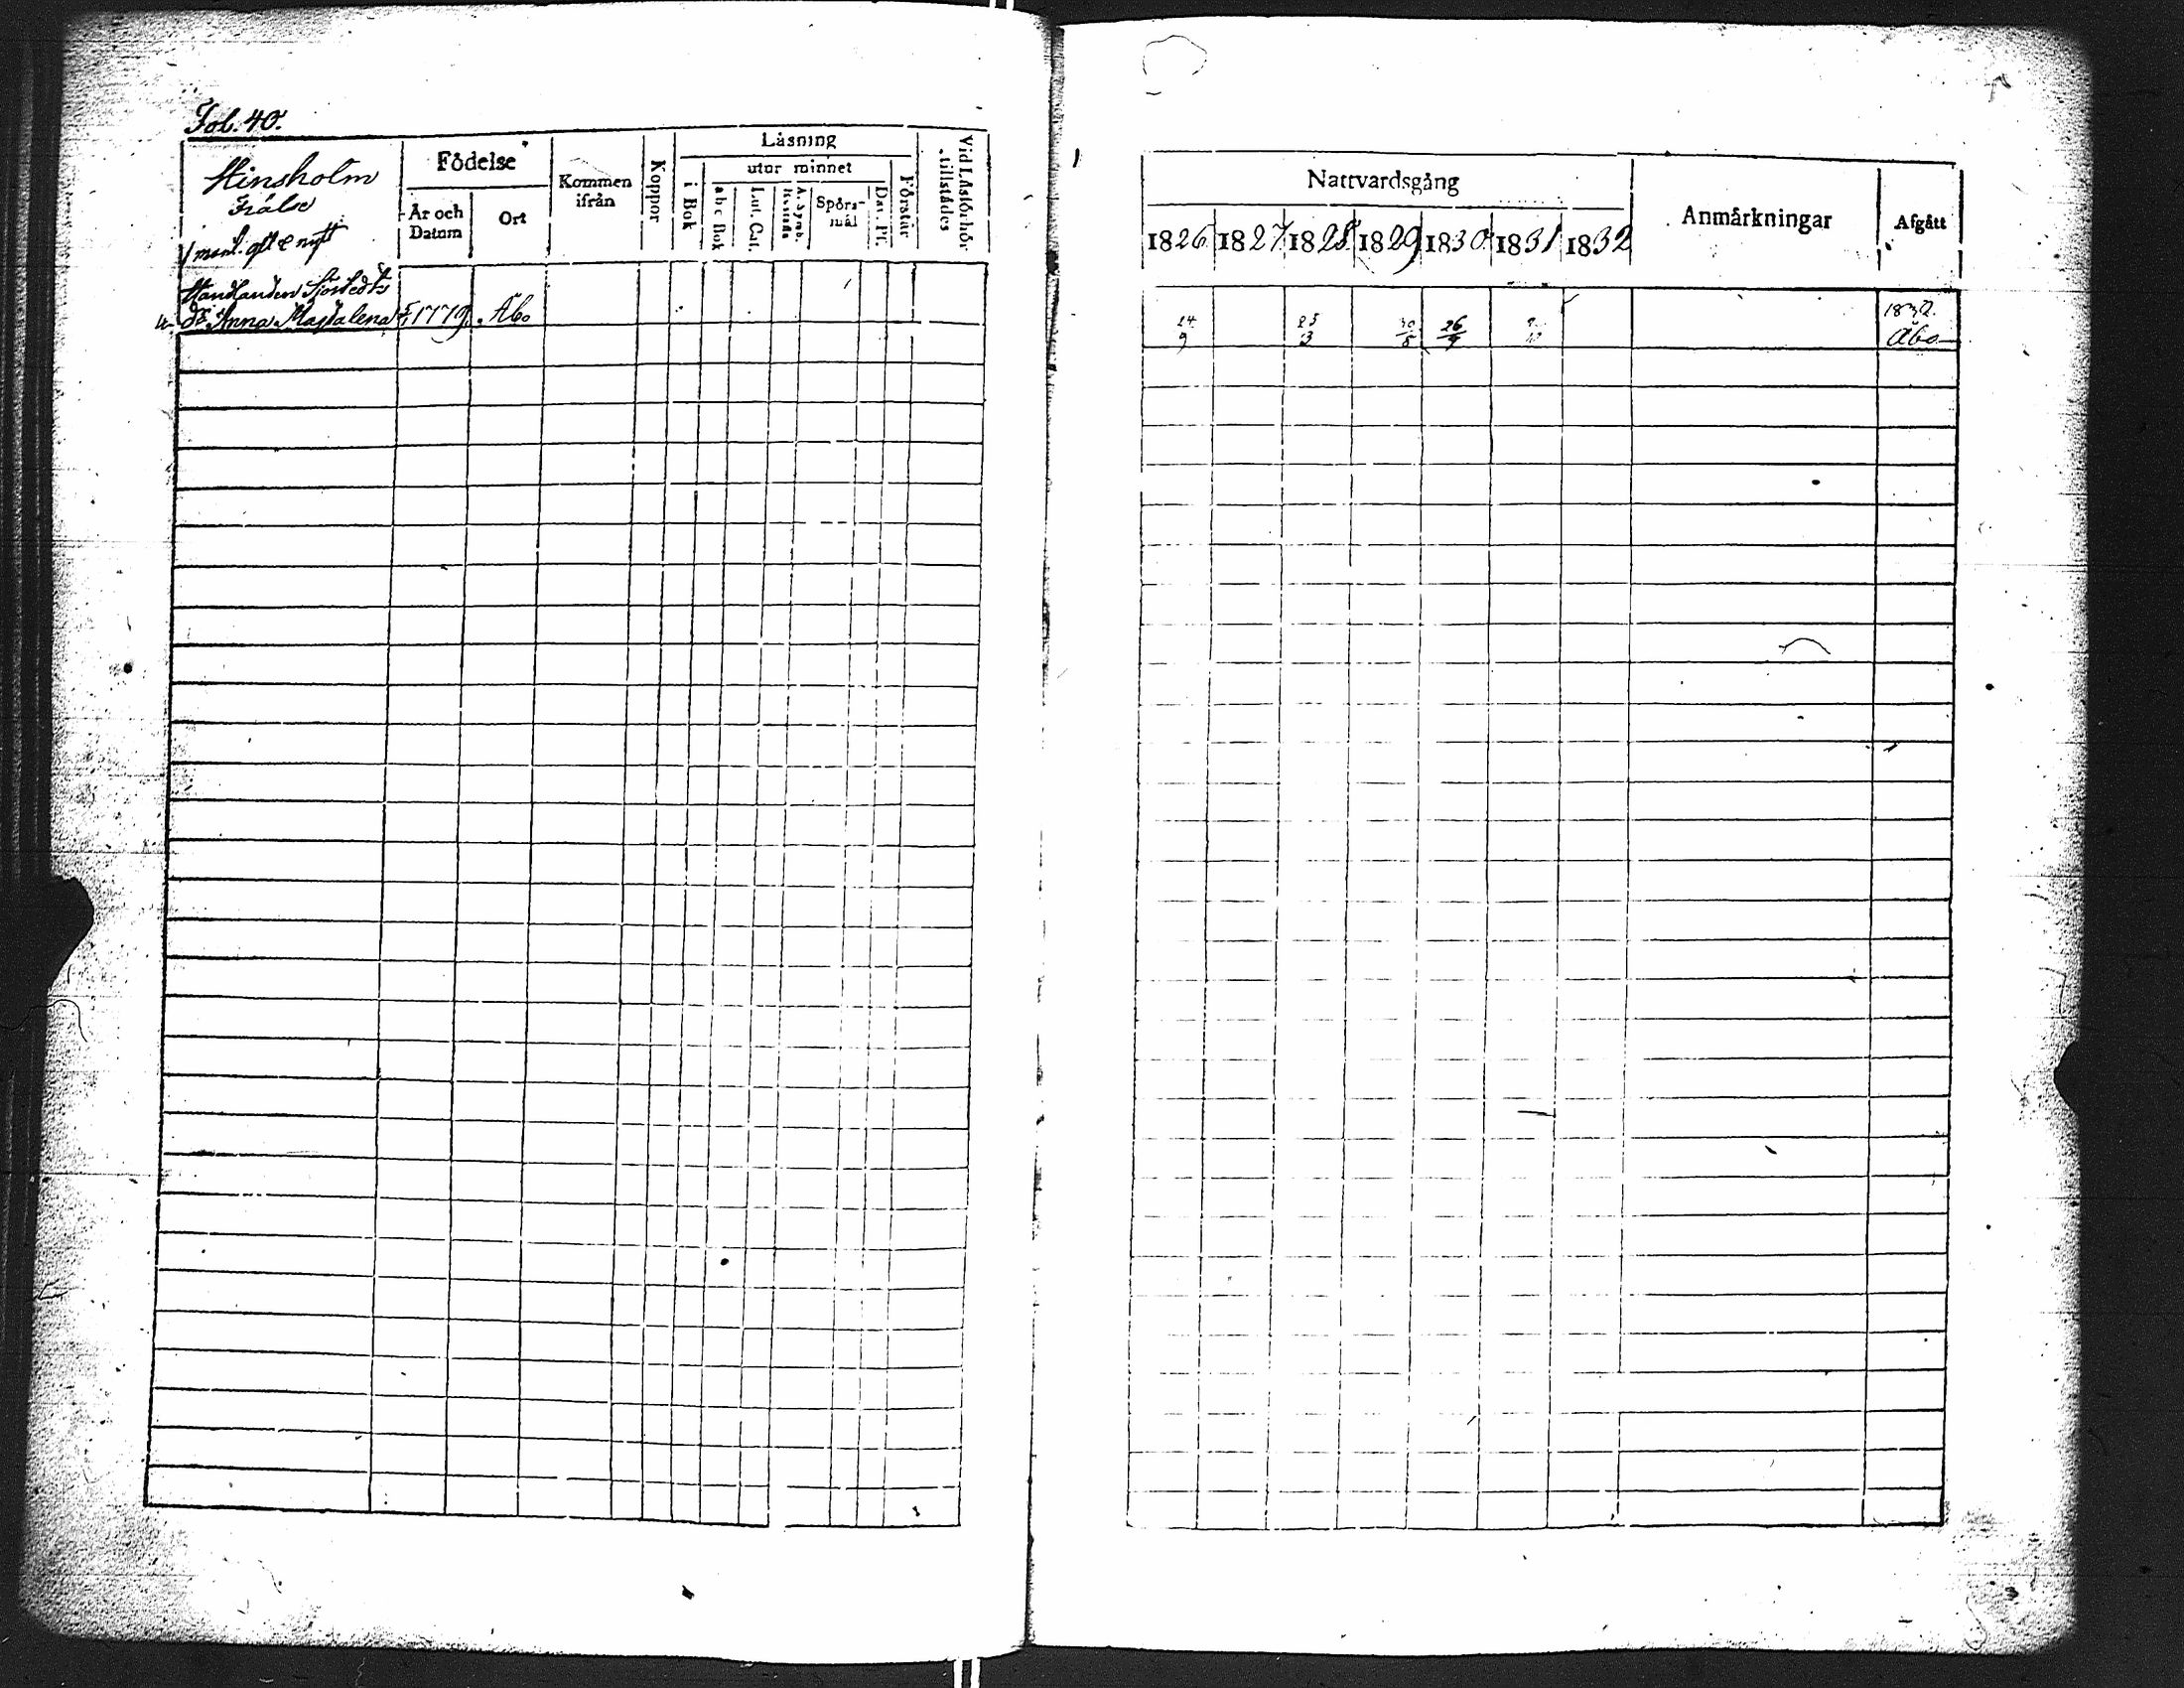 Fol. 40.
Hinsholm
Frälse
1 mant. glt & nytt
Födelse
År och Datum
Ort
Kommen ifrån
Koppor
Läsning
i Bok
utur minnet
abc Bok
Lut. Cat.
A. Symb.
Spörs-mål
Dav. Ps.
Förstår
Vid Läsförhör tillstädes
Handlanden Sjöstedts
Dr Anna Magdalena 1779. Åbo
Nattvardsgång
1826 1827 1828 1829 1830 1831 1832
Anmärkningar
Afgått
24/9 25/3 30/8 26/9
1832.
Åbo